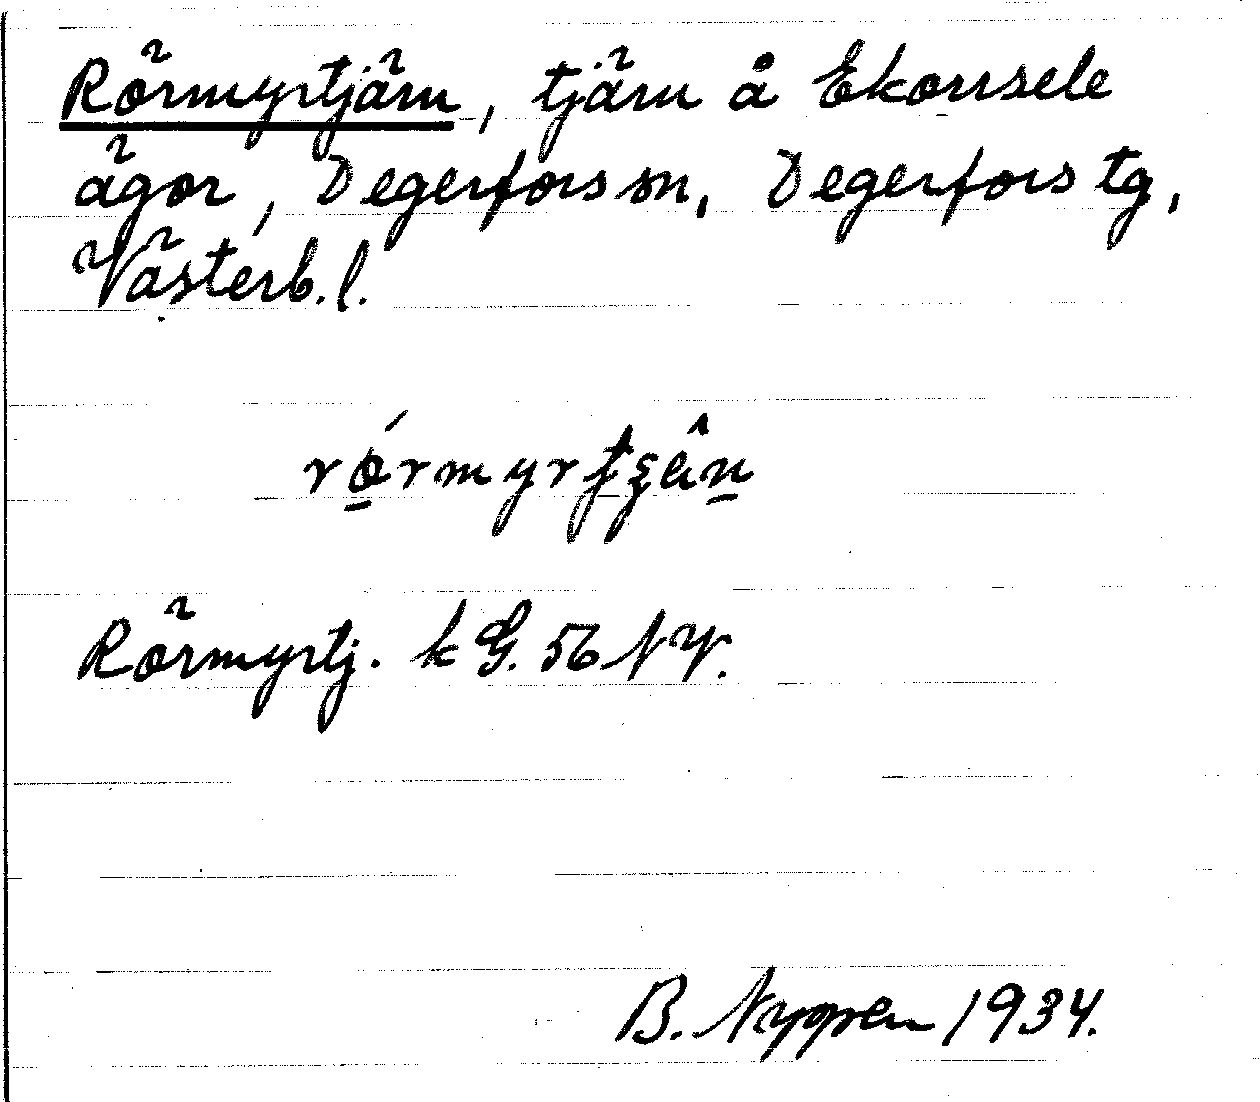 Rörmyrtjärn, tjärn å Ekorrsele
ägor, Degerfors sn, Degerfors tg,
Västerb. l.
Rörmyrtj. k G. 56 NV.
B. Nyppen 1934.